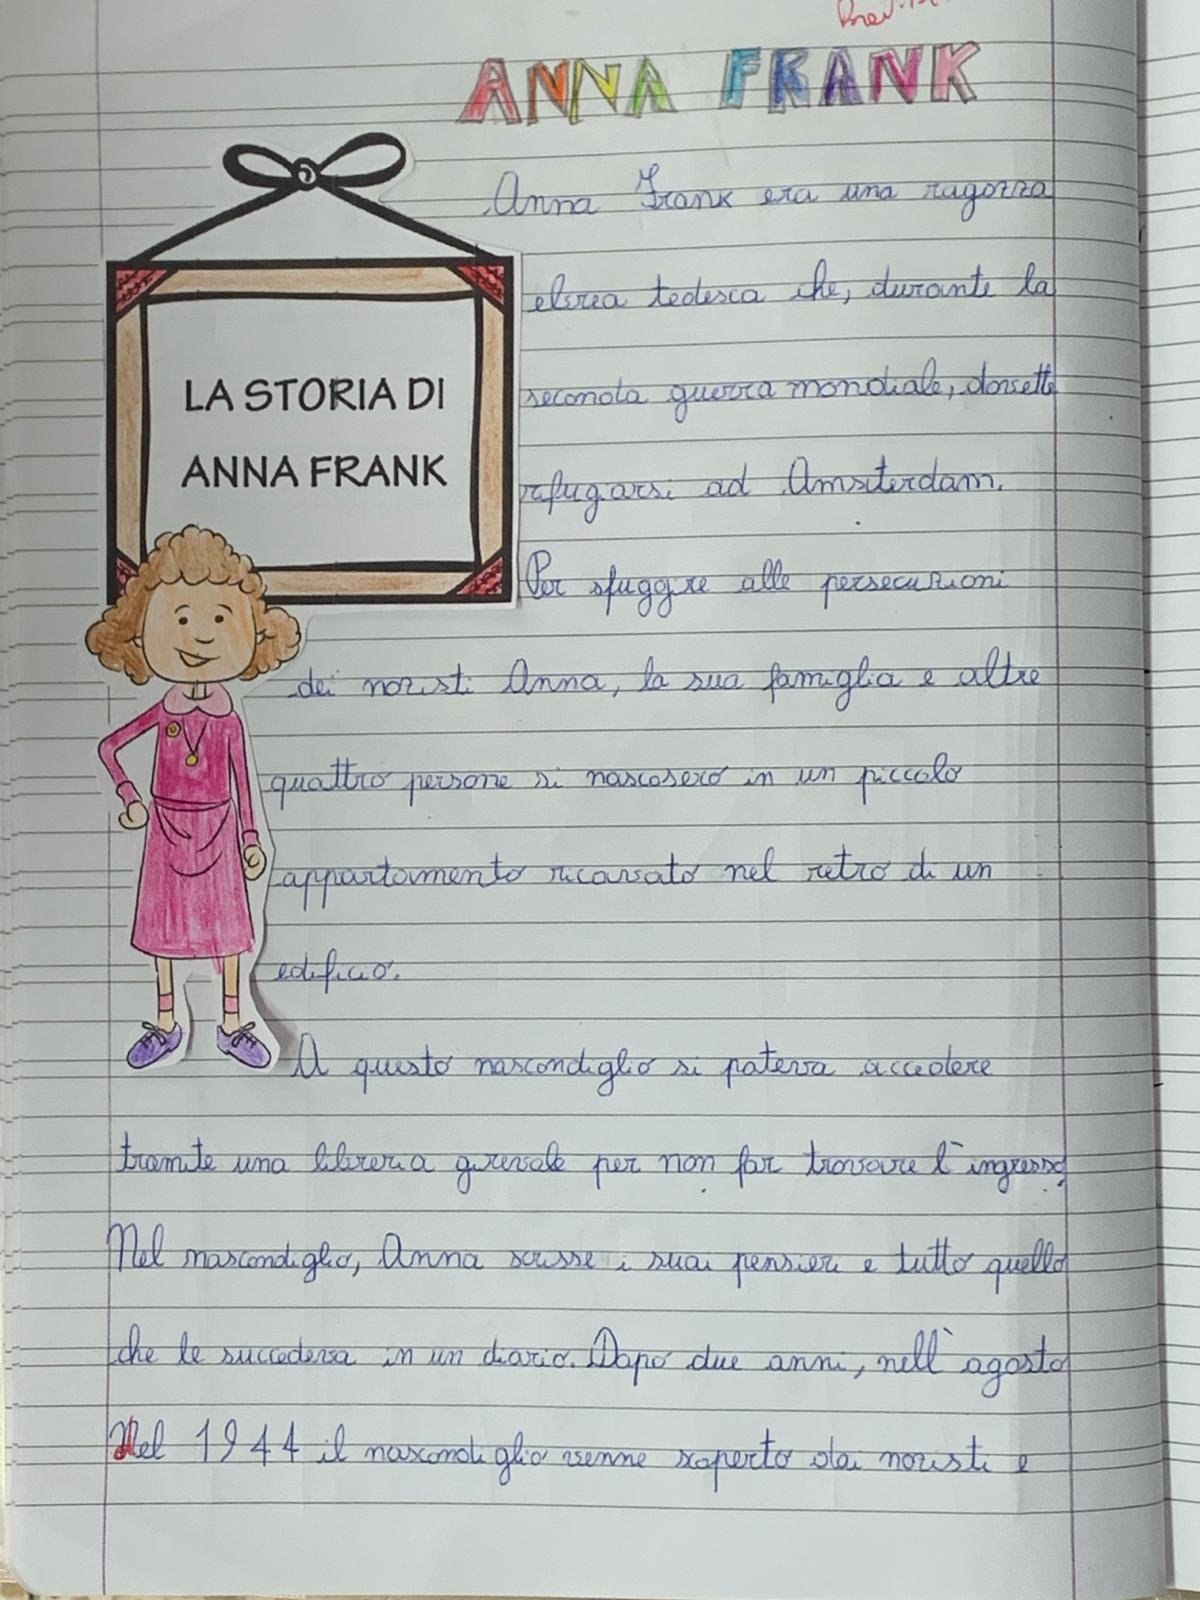 ANNA FRANK
LA STORIA DI
ANNA FRANK
Anna Frank era una ragazza
ebrea tedesca che, durante la
seconda guerra mondiale, dovette
rifugiarsi ad Amsterdam.
Per sfuggire alle persecuzioni
dei nazisti Anna, la sua famiglia e altre
quattro persone si nascosero in un piccolo
appartamento ricavato nel retro di un
edificio.
A questo nascondiglio si poteva accedere
tramite una libreria girevole per non far trovare l'ingresso.
Nel nascondiglio, Anna scrisse i suoi pensieri e tutto quello
che le succedeva in un diario. Dopo due anni, nell'agosto
Nel 1944 il nascondiglio venne scoperto dai nazisti e